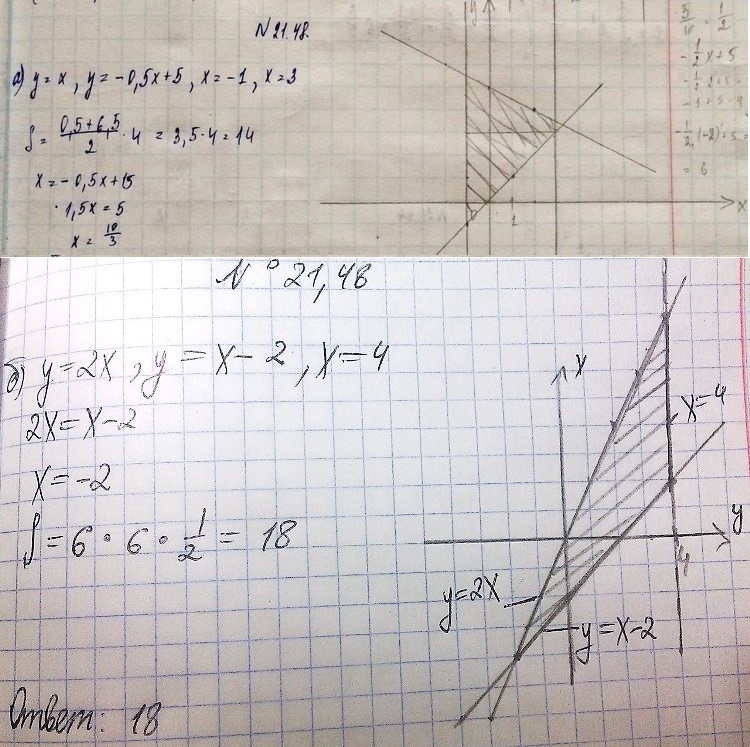 N 21.48.
а) y = x , y = -0,5x+5 , x = -1 , x = 3
∫ = (0,5+6,5)/2 · 4 = 3,5·4 = 14
x = -0,5x+5
1,5x = 5
x = 10/3
y
x
1
5/10 · 1/2
-1/2x+5
= 6
N° 21,48
б) y = 2x , y = x-2 , x = 4
2x = x-2
x = -2
∫ = 6 · 6 · 1/2 = 18
x
x=4
y
4
y=2x
y=x-2
Ответ: 18